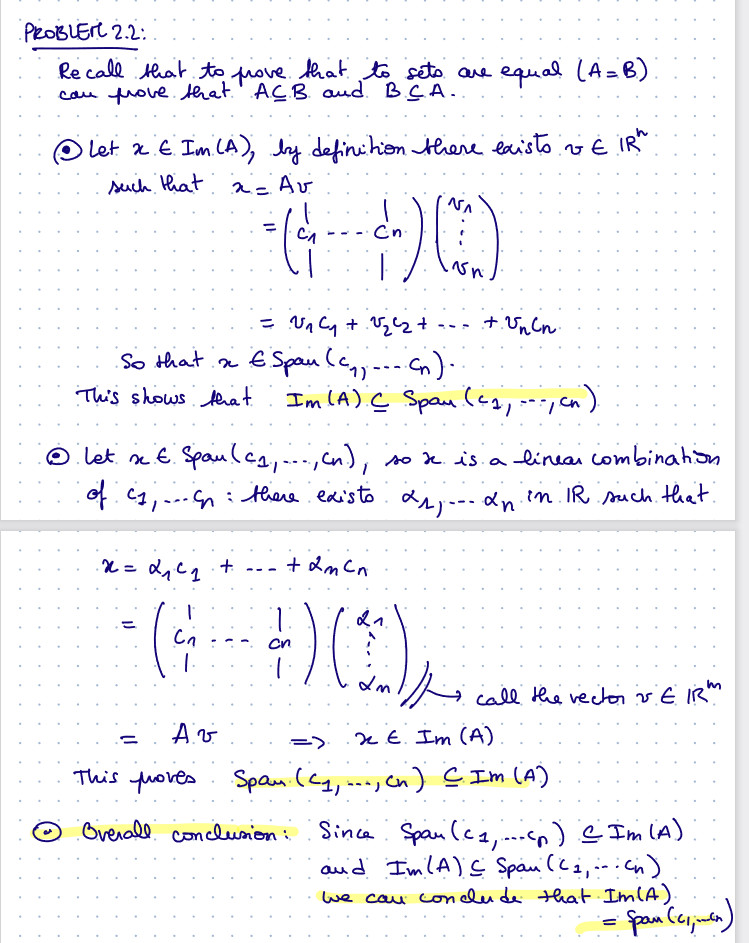 PROBLEM 2.2:
Recall that to prove that to sets are equal (A = B)
can prove that A ⊆ B and B ⊆ A.
⊙ Let x ∈ Im(A), by definition there exists v ∈ ℝⁿ
such that x = Av
= (c₁ ... cₙ) (v₁ ⋮ vₙ)
= v₁c₁ + v₂c₂ + ... + vₙcₙ
So that x ∈ Span(c₁, ... cₙ).
This shows that Im(A) ⊆ Span(c₁, ..., cₙ)
⊙ Let x ∈ Span(c₁, ..., cₙ), so x is a linear combination
of c₁, ... cₙ : there exists α₁, ... αₙ in ℝ such that
x = α₁c₁ + ... + αₙcₙ
= (c₁ ... cₙ) (α₁ ⋮ αₙ)
→ call the vector v ∈ ℝᵐ
= Av => x ∈ Im(A)
This proves Span(c₁, ..., cₙ) ⊆ Im(A)
⊙ Overall conclusion: Since Span(c₁, ... cₙ) ⊆ Im(A)
and Im(A) ⊆ Span(c₁, ... cₙ)
we can conclude that Im(A)
= Span(c₁, ... cₙ)